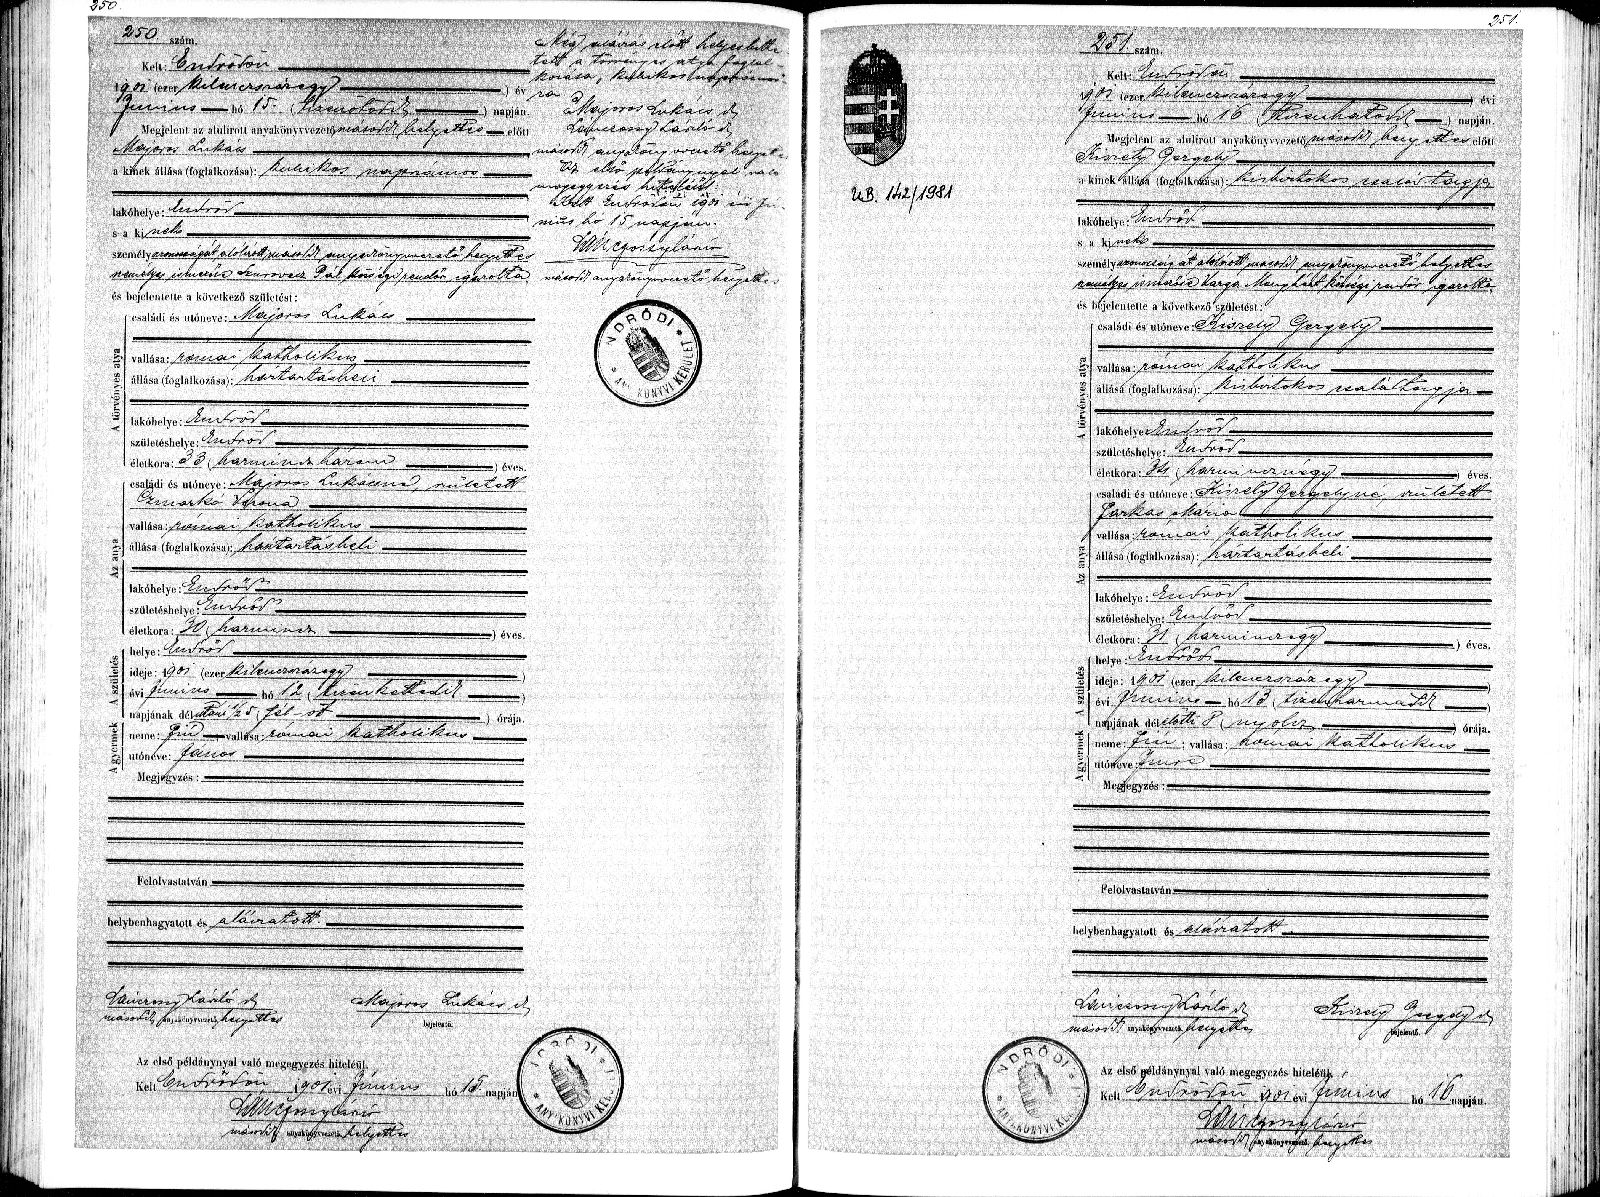 250.
250 szám.
Kelt: Endrődön
1901 (ezer kilenczszázegy) év
Junius hó 15. (tizenötödik) napján.
Megjelent az alulirott anyakönyvvezető második helyettes előtt
Majoros Lukács
a kinek állása (foglalkozása): kubikos napszámos
lakóhelye: Endrőd
s a kinek
személyazonosságát alólirott második anyakönyvvezető helyettes
Pál községi rendőr igazolta
és bejelentette a következő születést:
A törvényes atya
családi és utóneve: Majoros Lukács
vallása: római katholikus
állása (foglalkozása): háztartásbeli
lakóhelye: Endrőd
születéshelye: Endrőd
életkora: 33 (harminczhárom) éves.
Az anya
családi és utóneve: Majoros Lukácsné, született
Czmarkó
vallása: római katholikus
állása (foglalkozása): háztartásbeli
lakóhelye: Endrőd
születéshelye: Endrőd
életkora: 30 (harmincz) éves.
A születés
helye: Endrőd
ideje: 1901 (ezer kilenczszázegy)
évi Junius hó 12 (tizenkettedik)
napjának délutáni 1/2 5 (fél öt) órája.
A gyermek
neme: fiú vallása: római katholikus
utóneve: János
Megjegyzés:
Felolvastatván
helybenhagyatott és aláiratott.
László Majoros Lukács
második anyakönyvvezető helyettes bejelentő.
Az első példánynyal való megegyezés hiteléül.
Kelt Endrődön 1901 évi Junius hó 15 napján
második anyakönyvvezető helyettes
Még aláirás előtt
tett a törvényes atya foglal-
kozása, kubikos napszámos
ra
Majoros Lukács
László
második anyakönyvvezető helyettes
Az első példánynyal való
megegyezés hiteléül:
Kelt Endrődön 1901 évi Ju-
nius hó 15 napján.
második anyakönyvvezető helyettes
NDRŐDI
ANYAKÖNYVI KERÜLET
251.
U.B. 142/1981
251. szám.
Kelt: Endrődön
1901 (ezer kilenczszázegy) évi
Junius hó 16 (tizenhatodik) napján.
Megjelent az alulirott anyakönyvvezető második helyettes előtt
Kiszely Gergely
a kinek állása (foglalkozása): kisbirtokos család tagja
lakóhelye: Endrőd
s a kinek
személyazonosságát alólirott második anyakönyvvezető helyettes
személyes ismerőse Varga községi rendőr igazolta
és bejelentette a következő születést:
A törvényes atya
családi és utóneve: Kiszely Gergely
vallása: római katholikus
állása (foglalkozása): kisbirtokos család tagja
lakóhelye: Endrőd
születéshelye: Endrőd
életkora: 34 (harmincznégy) éves.
Az anya
családi és utóneve: Kiszely Gergelyné, született
Farkas Mária
vallása: római katholikus
állása (foglalkozása): háztartásbeli
lakóhelye: Endrőd
születéshelye: Endrőd
életkora: 31 (harminczegy) éves.
A születés
helye: Endrőd
ideje: 1901 (ezer kilenczszáz egy)
évi Junius hó 13 tizenharmadik
napjának délelőtti 8 (nyolcz) órája.
A gyermek
neme: fiú; vallása: római katholikus
utóneve Imre
Megjegyzés:
Felolvastatván
helybenhagyatott és aláiratott.
László Kiszely Gergely
második anyakönyvvezető helyettes bejelentő.
NDRŐDI
ANYAKÖNYVI KERÜLET
Az első példánynyal való megegyezés hiteléül.
Kelt Endrődön 1901 évi Junius hó 16 napján.
második anyakönyvvezető helyettes